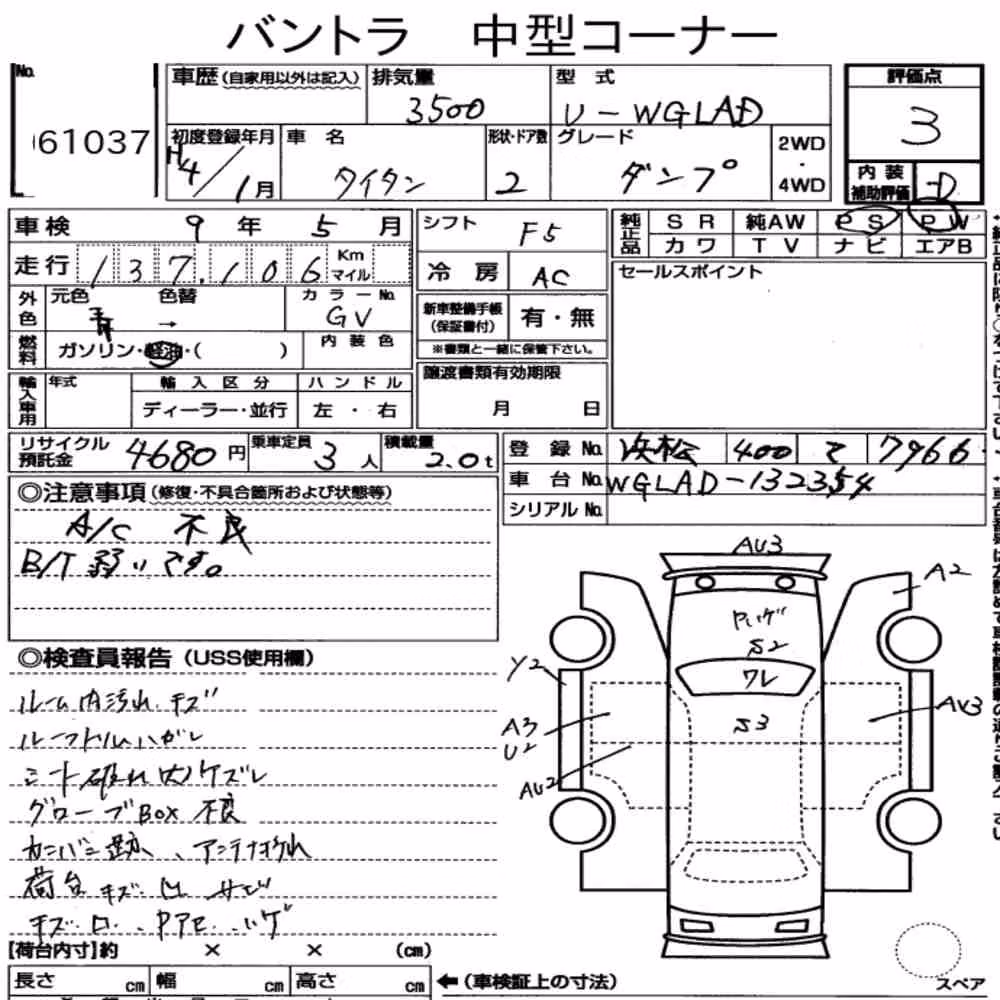 バントラ 中型コーナー
No. 61037
車歴(自家用以外は記入) 排気量 3500 型式 U-WGLAD
初度登録年月 H4/1月 車名 タイタン 形状・ドア数 2 グレード ダンプ 2WD・4WD
評価点 3
内装補助評価 D
車検 9年 5月
走行 137,106 Km マイル
外色 元色 青 色替 → カラーNo. GV
燃料 ガソリン・軽油・( ) 内装色
輸入車用 年式 輸入区分 ディーラー・並行 ハンドル 左・右
シフト F5
冷房 AC
新車整備手帳(保証書付) 有・無
※書類と一緒に保管下さい。
譲渡書類有効期限 月 日
純正品 SR 純AW PS PW
カワ TV ナビ エアB
セールスポイント
リサイクル預託金 4680円 乗車定員 3人 積載量 2.0t
登録No. 浜松 400 て 7966
車台No. WGLAD-132354
シリアルNo.
◎注意事項(修復・不具合箇所および状態等)
A/C 不良
B/T 弱いです。
◎検査員報告(USS使用欄)
ルーム内汚れ、キズ
ルーフドルムハガレ
シート破れ大 ケズレ
グローブBOX 不良
カンバン跡、アンテナ折れ
荷台 キズ 凹 サビ
キズ・凹・ハゲ
AU3
A2
Pハゲ
S2
Y2
ワレ
A3
U2
S3
AU3
AU2
[荷台内寸]約 × × (cm)
長さ cm 幅 cm 高さ cm ←(車検証上の寸法)
スペア